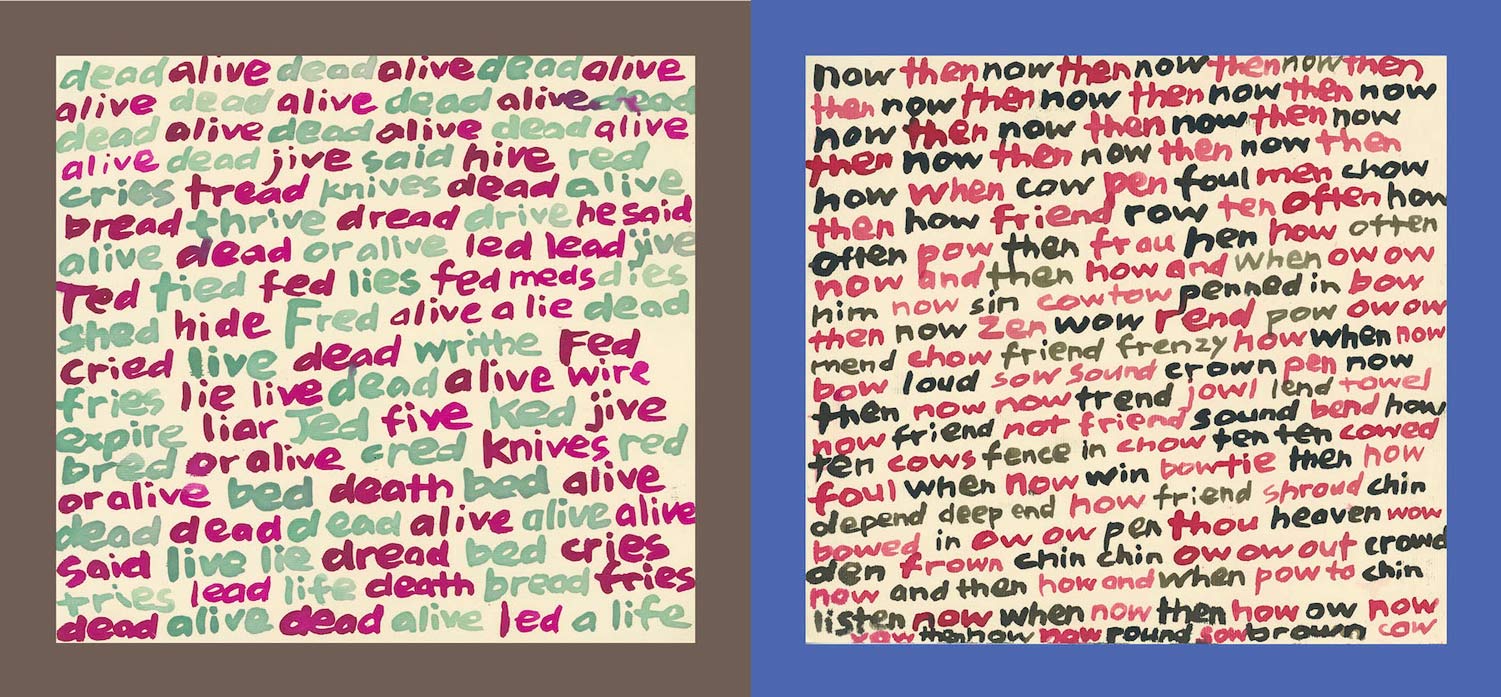 dead alive dead alive dead alive
alive dead alive dead alive dead
dead alive dead alive dead alive
alive dead jive said hive red
cries tread knives dead alive
bread thrive dread drive he said
alive dead or alive led lead jive
Ted tied fed lies fed meds dies
shed hide Fred alive a lie dead
cried live dead writhe Fed
fries lie live dead alive wire
expire liar Jed five Ked jive
bred or alive cred knives red
or alive bed death bed alive
dead dead dead alive alive alive
said live lie dread bed cries
tries lead life death bread fries
dead alive dead alive led a life
now then now then now then now then
then now then now then now then now
now then now then now then now
then now then now then now then
how when cow pen foul men chow
then how friend row ten often how
often pow then frau hen how often
now and then how and when ow ow
him now sin cow tow penned in bow
then now zen wow rend pow ow ow
mend chow friend frenzy how when now
bow loud sow sound crown pen now
then now now trend jowl lend towel
now friend not friend sound bend how
ten cows fence in chow ten ten cowed
foul when now win bowtie then how
depend deep end how friend shroud chin
bowed in ow ow pen thou heaven wow
den frown chin chin ow ow out crowd
now and then how and when pow to chin
listen now when now then how ow now
vow then how now round sow brown cow